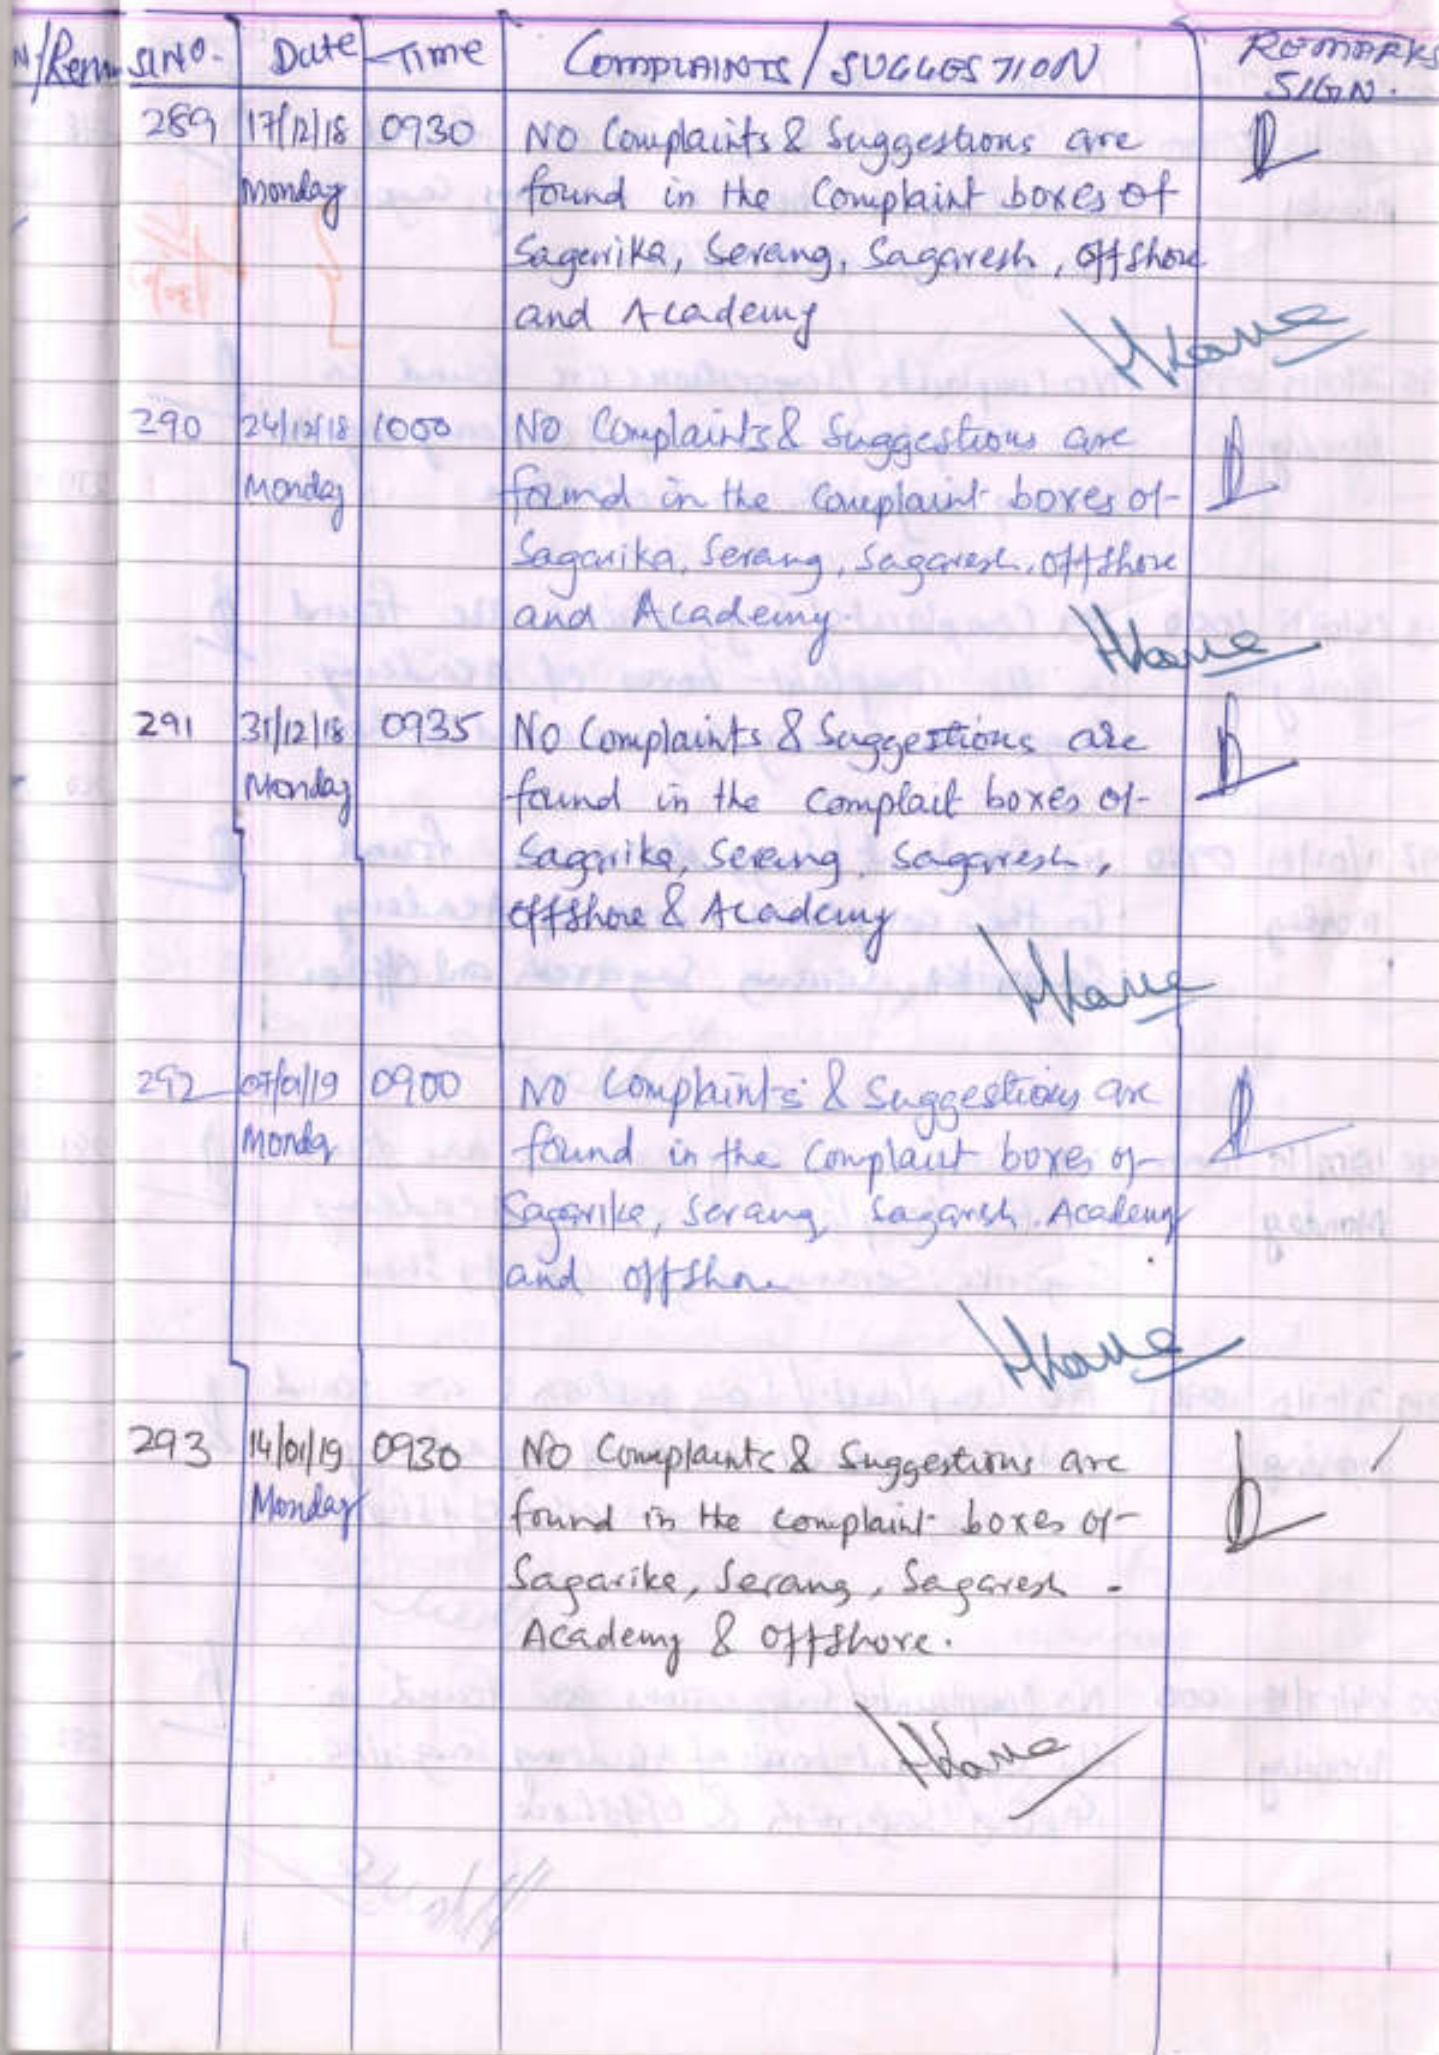 N/Rem SL NO. Date Time COMPLAINTS / SUGGESTION REMARKS
SIGN.
289 17/12/18 0930 NO Complaits & Suggestions are
Monday found in the Complaint boxes of
Sagarika, Serang, Sagaresh, offshore
and Academy
290 24/12/18 1000 NO Complaints & Suggestions are
Monday found in the Complaint boxes of
Sagarika, Serang, Sagaresh, offshore
and Academy.
291 31/12/18 0935 NO Complaints & Suggestions are
Monday found in the complait boxes of
Sagarika, Serang, Sagaresh,
offshore & Academy
292 07/01/19 0900 NO Complaints & Suggestions are
Monday found in the Complaint boxes of
Sagarika, Serang, Sagaresh, Academy
and offshore
293 14/01/19 0930 NO Complaints & Suggestions are
Monday found in the complaint boxes of
Sagarika, Serang, Sagaresh.
Academy & offshore.